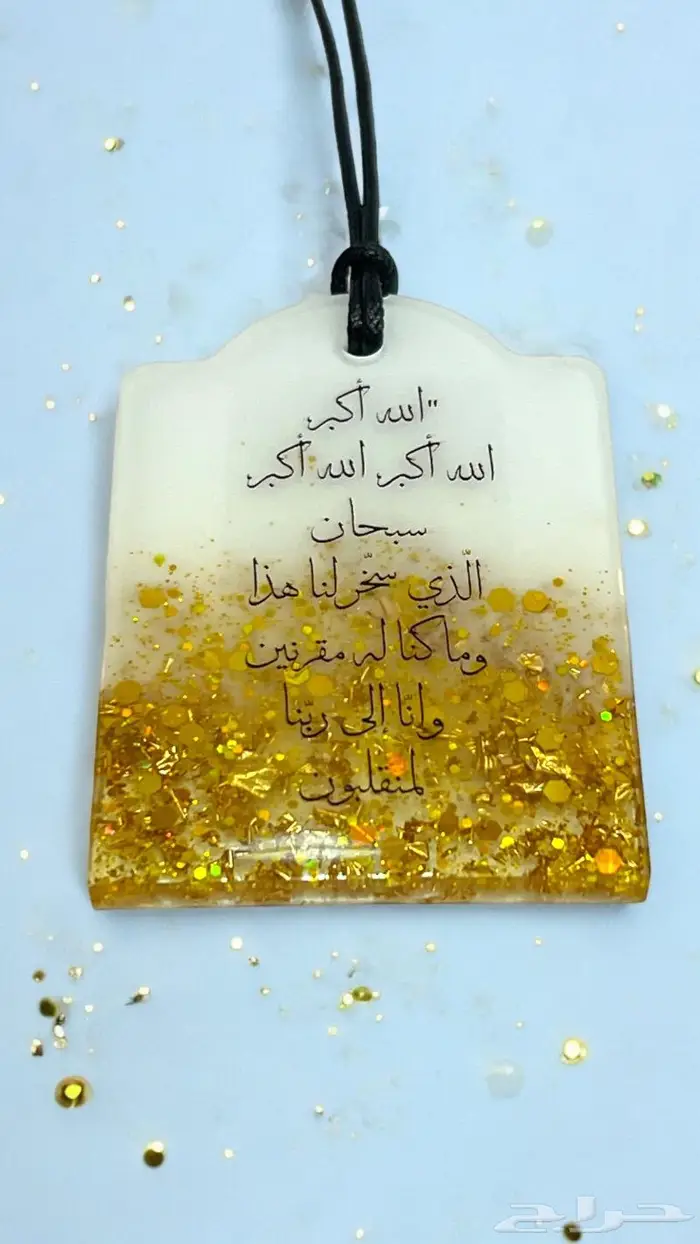 "الله أكبر
الله أكبر الله أكبر
سبحان
الّذي سخّر لنا هذا
وما كنا له مقرنين
وانّا إلى ربّنا
لمنقلبون
حراج